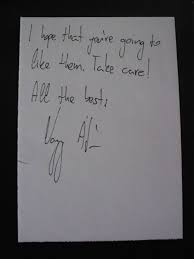 I hope that you're going to
like them. Take care!
All the best,